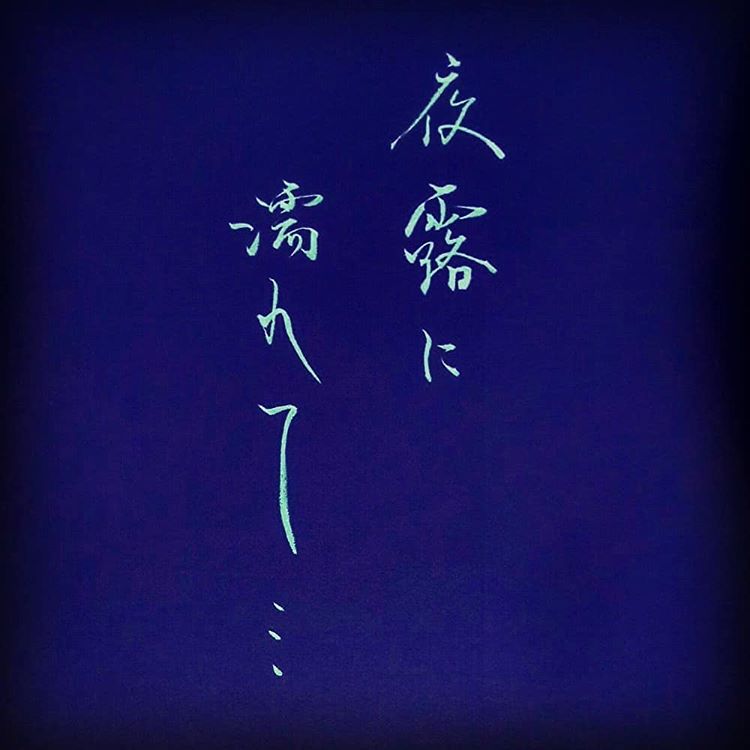 夜露に
濡れて…